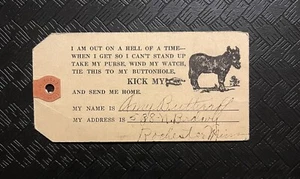 I AM OUT ON A HELL OF A TIME—
WHEN I GET SO I CAN'T STAND UP
TAKE MY PURSE, WIND MY WATCH,
TIE THIS TO MY BUTTONHOLE,
KICK MY
AND SEND ME HOME.
MY NAME IS
MY ADDRESS IS
Rochester Minn